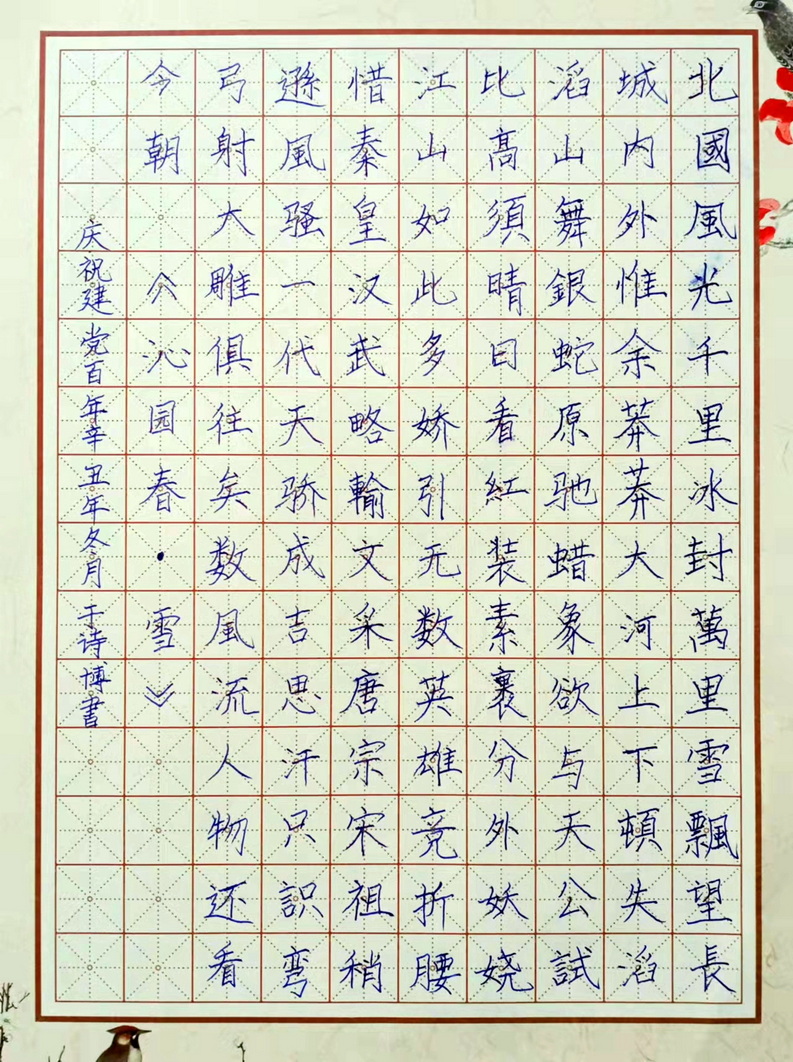 北國風光千里冰封萬里雪飄望長
城内外惟余莽莽大河上下頓失滔
滔山舞銀蛇原驰蜡象欲与天公試
比高須晴日看紅装素裹分外妖娆
江山如此多娇引无数英雄竞折腰
惜秦皇汉武略輸文采唐宗宋祖稍
遜風骚一代天骄成吉思汗只識弯
弓射大雕俱往矣数風流人物还看
今朝《沁园春·雪》
庆祝建党百年辛丑年冬月于诗博書